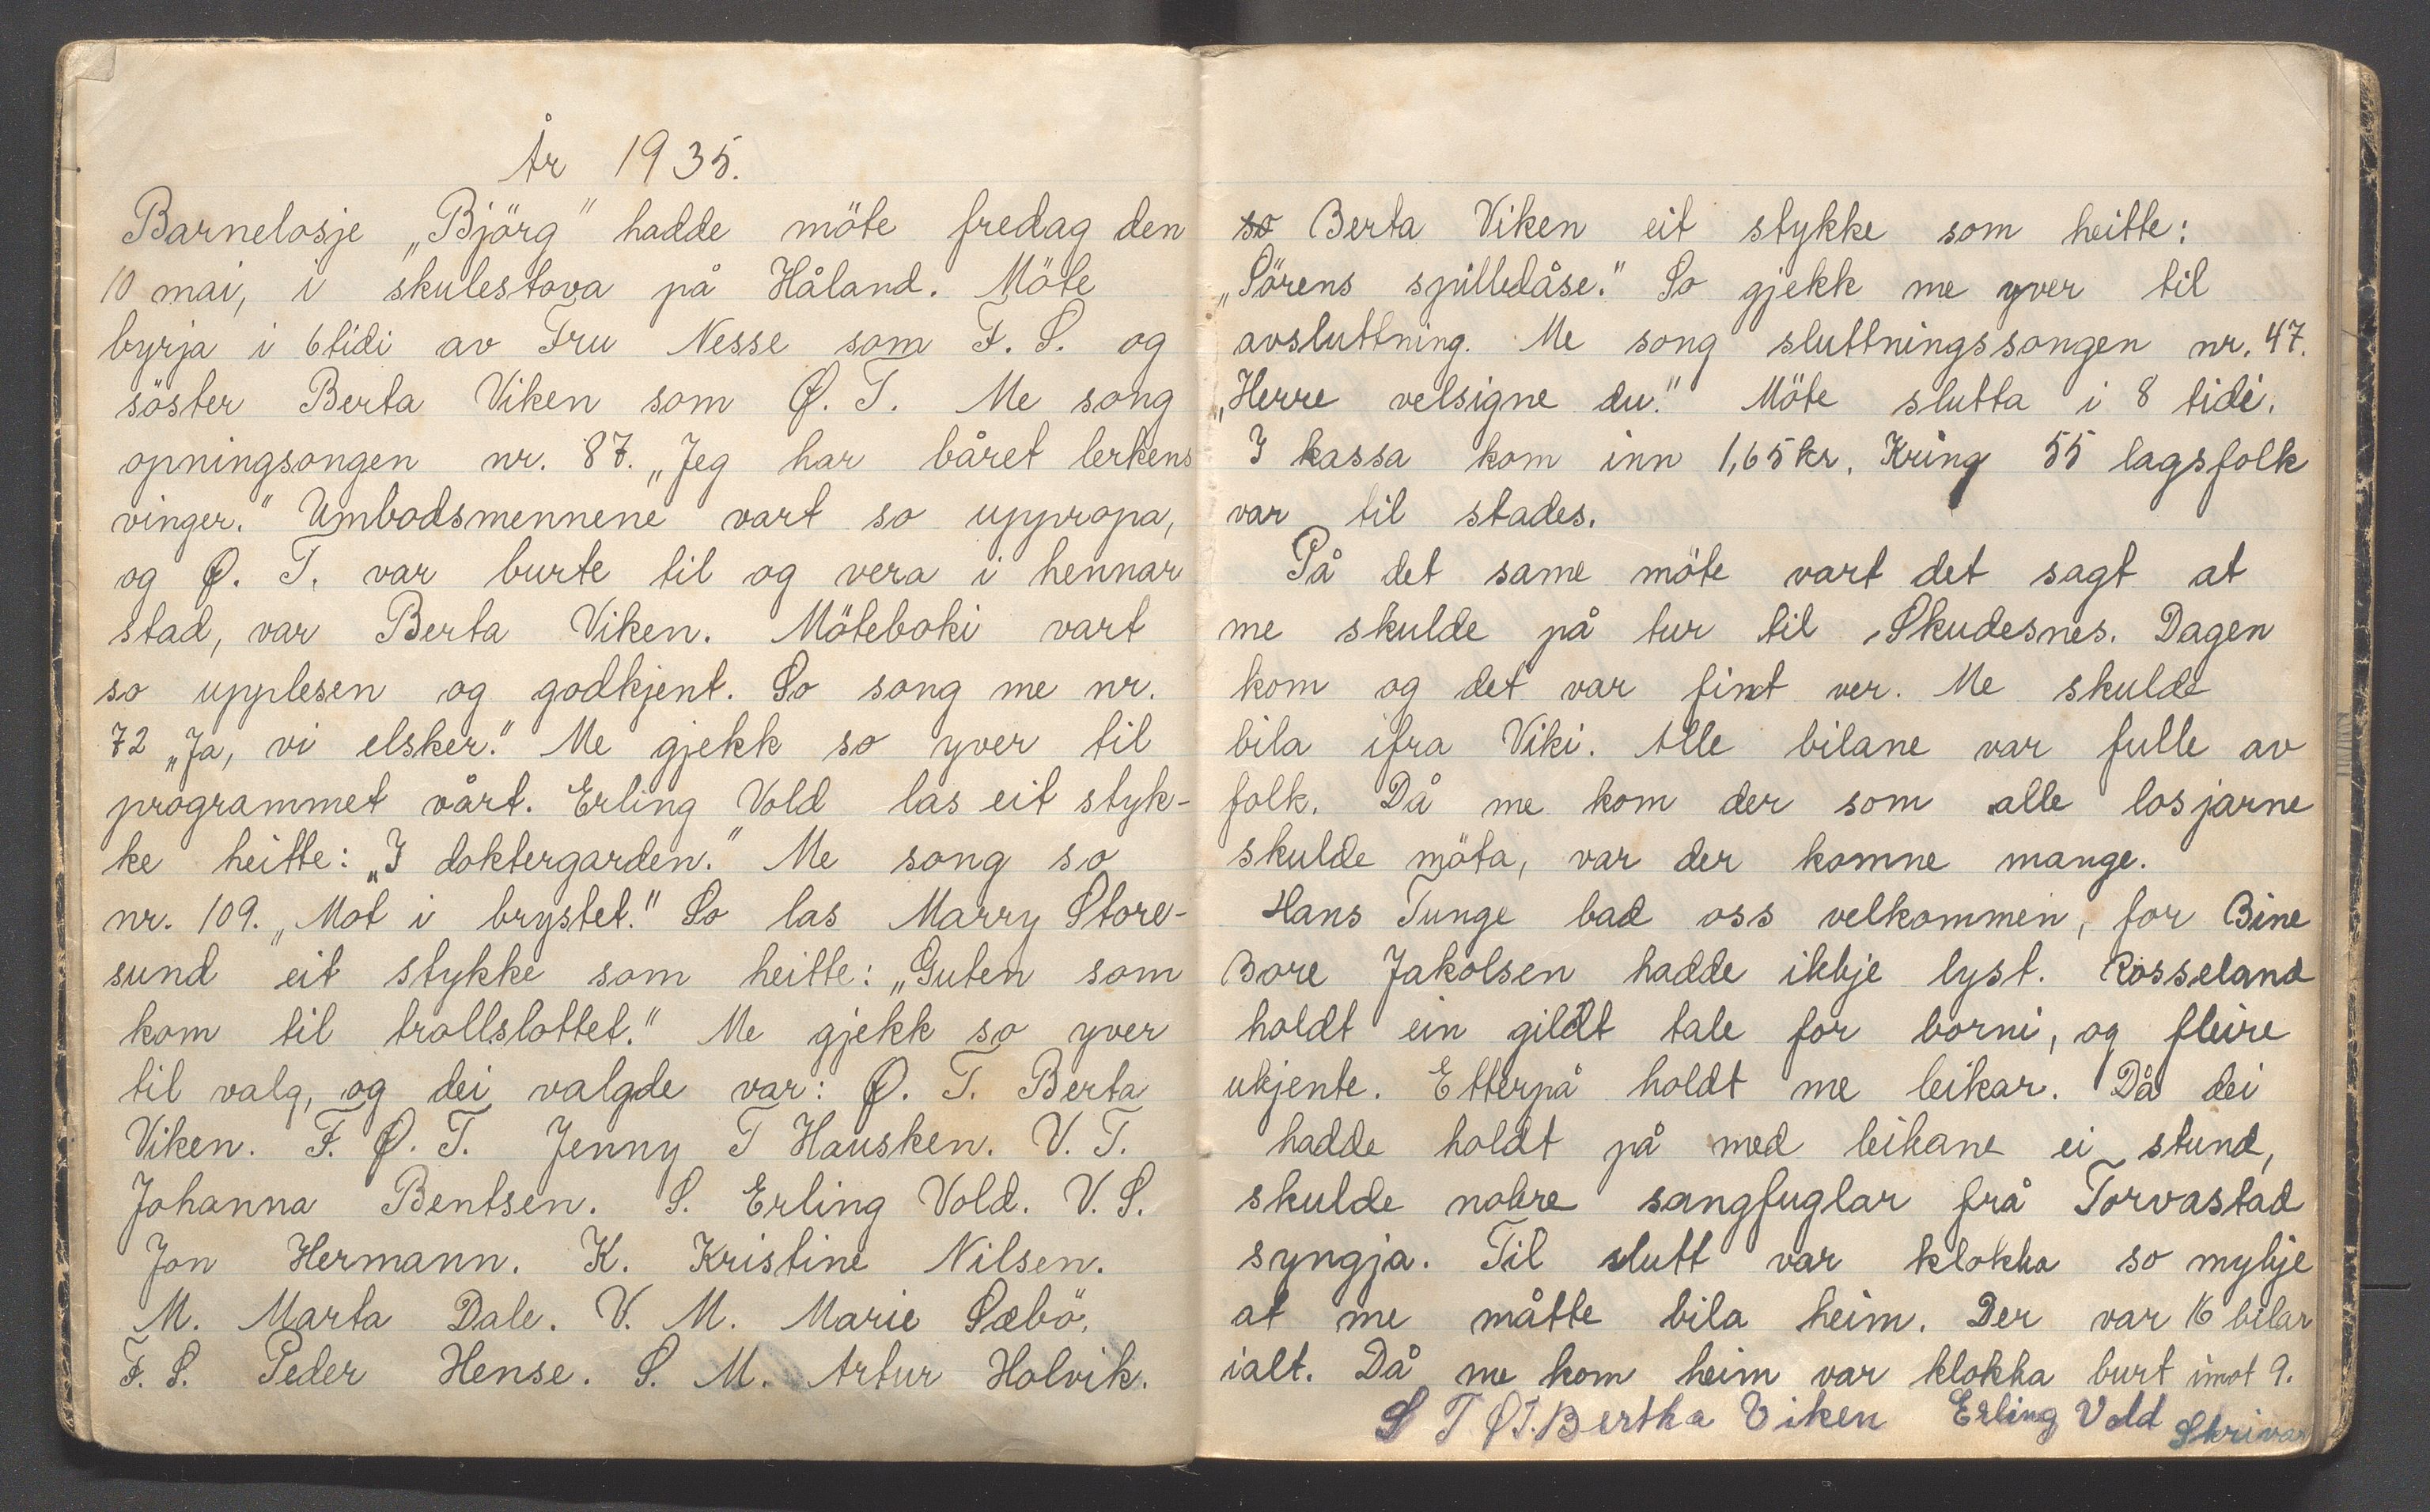 År 1935.
Barnelosje „Björg" hadde möte fredag den
10 mai, i skulestova på Håland. Möte
byrja i 6tidi av Fru Nesse som F. S. og
söster Berta Viken som Ø. T. Me song
opningsongen nr. 87. „Jeg har båret lerkens
vinger." Umbodsmennene vart so uppropa,
og Ø. T. var burte til og vera i hennar
stad, var Berta Viken. Möteboki vart
so upplesen og godkjent. So song me nr.
72 „Ja, vi elsker." Me gjekk so yver til
programmet vårt. Erling Vold las eit styk-
ke heitte: „I doktergarden." Me song so
nr. 109. „Mot i brystet." So las Marry Store-
sund eit stykke som heitte: „Guten som
kom til trollslottet." Me gjekk so yver
til valg, og dei valgde var: Ø. T. Berta
Viken. F. Ø. T. Jenny T Hausken. V. T.
Johanna Bentsen. S. Erling Vold. V. S.
Jon Hermann. K. Kristine Nilsen.
M. Marta Dale. V. M. Marie Sæbö.
F. S. Peder Hense. S. M. Artur Holvik.
so Berta Viken eit stykke som heitte:
„Sörens spilledåse." So gjekk me yver til
avsluttning. Me song sluttningssongen nr. 47.
„Herre velsigne du." Möte slutta i 8 tidi.
I kassa kom inn 1,65 kr. Kring 55 lagsfolk
var til stades.
På det same möte vart det sagt at
me skulde på tur til Skudesnes. Dagen
kom og det var fint ver. Me skulde
bila ifra Viki. Alle bilane var fulle av
folk. Då me kom der som alle losjarne
skulde möta, var der komne mange.
Hans Tunge bad oss velkommen, for Bine
Bore Jakolsen hadde ikkje lyst. Rosseland
holdt ein gildt tale for borni, og fleire
ukjente. Etterpå holdt me leikar. Då dei
hadde holdt på med leikane ei stund,
skulde nokre sangfuglar frå Torvastad
syngja. Til slutt var klokka so mykje
at me måtte bila heim. Der var 16 bilar
ialt. Då me kom heim var klokka burt imot 9.
S T ØT. Bertha Viken Erling Vold Skrivar